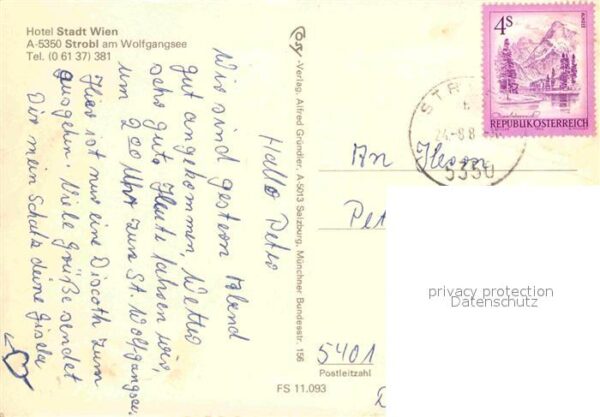 Hotel Stadt Wien
A-5350 Strobl am Wolfgangsee
Tel. (0 61 37) 381
Hallo Peter
Wir sind gestern Abend
gut angekommen, Wetter
sehr gut. Heute fahren wir
um 2 00 Uhr zum St. Wolfgangsee,
Hier ist nur eine Discoth zum
ausgehen. Viele Grüße sendet
Dir mein Schatz deine Gisela
Cosy-Verlag, Alfred Gründler, A-5013 Salzburg, Münchner Bundesstr. 156
4S
REPUBLIK ÖSTERREICH
5350
An Herrn
Pet
privacy protection
Datenschutz
5401
Postleitzahl
FS 11.093